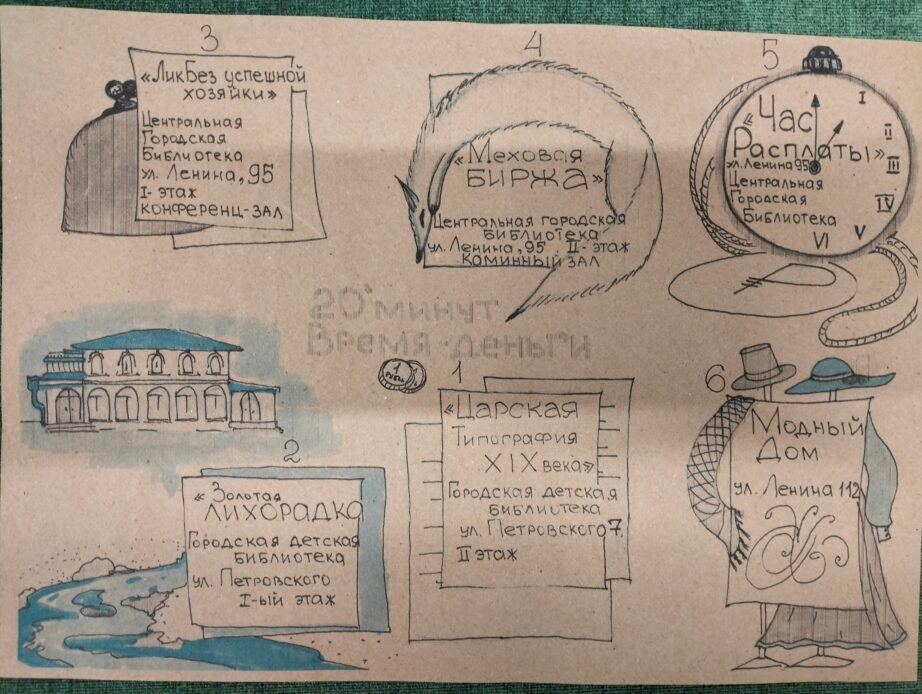 3
«ЛикБез успешной
хозяйки»
Центральная
Городская
Библиотека
ул. Ленина, 95
I- этаж
конференц-зал
4
«Меховая
БИРЖА»
Центральная городская
библиотека
ул. Ленина, 95 II- этаж
Каминный зал
5
«Час
Расплаты»
ул. Ленина 95
Центральная
Городская
Библиотека
I
II
III
IV
V
VI
20 минут
Время-деньги
1
РУБЛЬ
1
«Царская
Типография
XIX века»
Городская детская
библиотека
ул. Петровского 7.
II этаж
2
«Золотая
ЛИХОРАДКА
Городская детская
библиотека
ул. Петровского
I-ый этаж
6
Модный
Дом
ул. Ленина 112